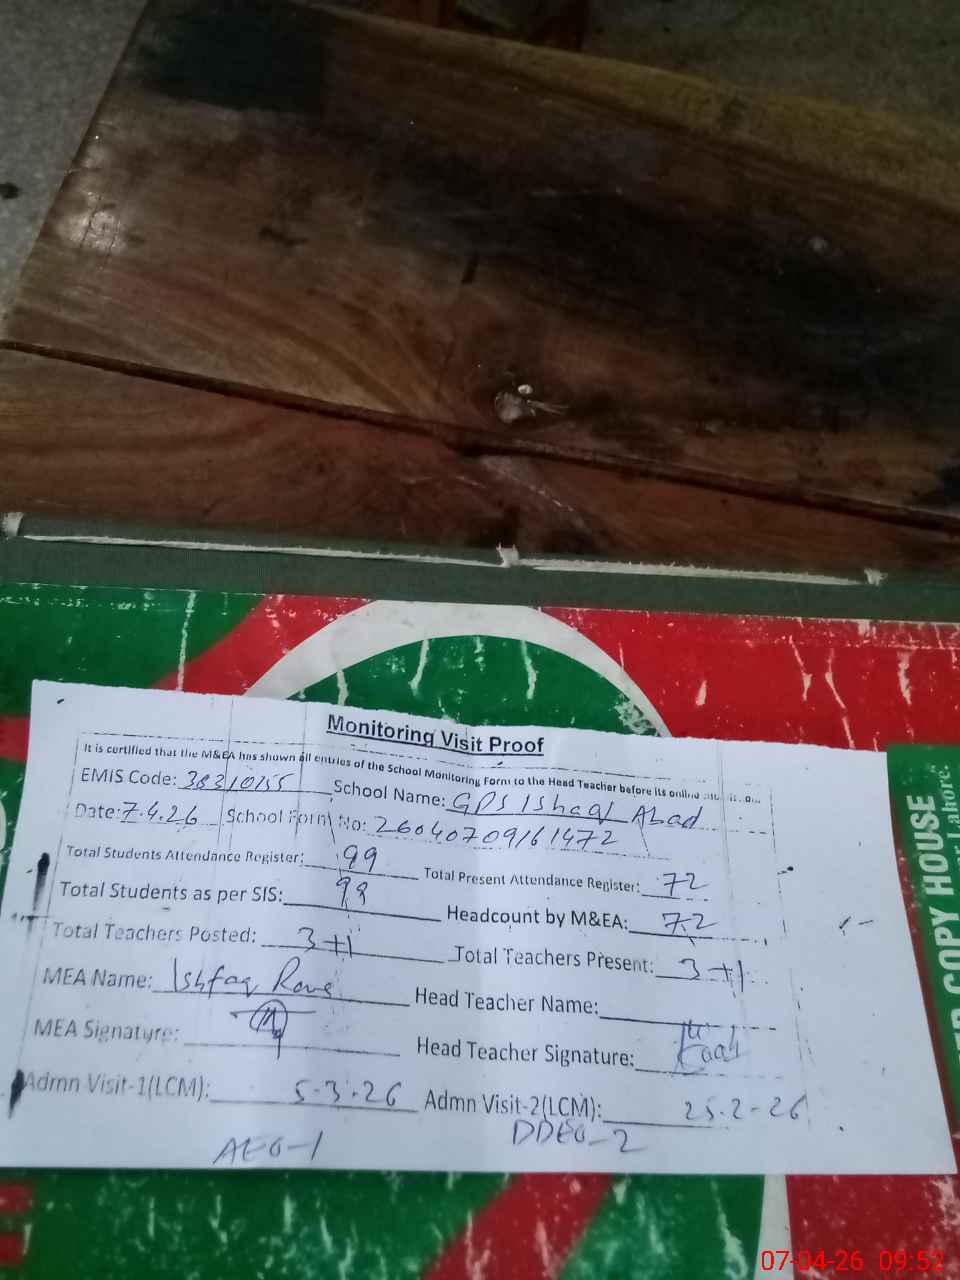 Monitoring Visit Proof
It is certified that the M&EA has shown all entries of the School Monitoring Form to the Head Teacher before its online
EMIS Code: 38310155 School Name: GPS Ishaq Abad
Date: 7.4.26 School Form No: 26040709161472
Total Students Attendance Register: 99 Total Present Attendance Register: 72
Total Students as per SIS: 99 Headcount by M&EA: 72
Total Teachers Posted: 3+1 Total Teachers Present: 3+1
MEA Name: Ishfaq Head Teacher Name:
MEA Signature: Head Teacher Signature:
Admn Visit-1(LCM): 5-3-26 Admn Visit-2(LCM): 25-2-26
AEO-1 DDEO-2
COPY HOUSE
Lahore.
07-04-26 09:52